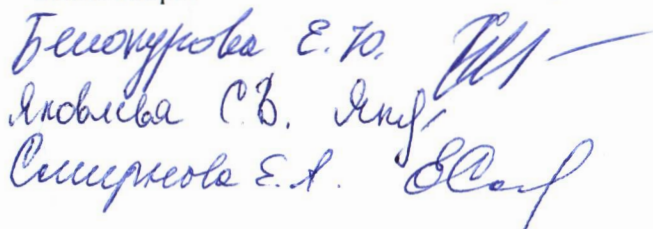 Белокурова Е.Ю.
Яковлева С.В.
Смирнова Е.А.